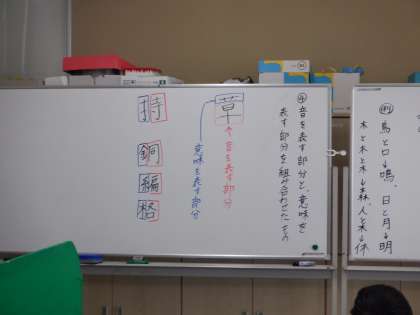 鳥と口→鳴、日と月→明
木と木と木→森、人と木→休
④音を表す部分と、意味を
表す部分を組み合わせたもの
草
音を表す部分
意味を表す部分
持
銅
編
格